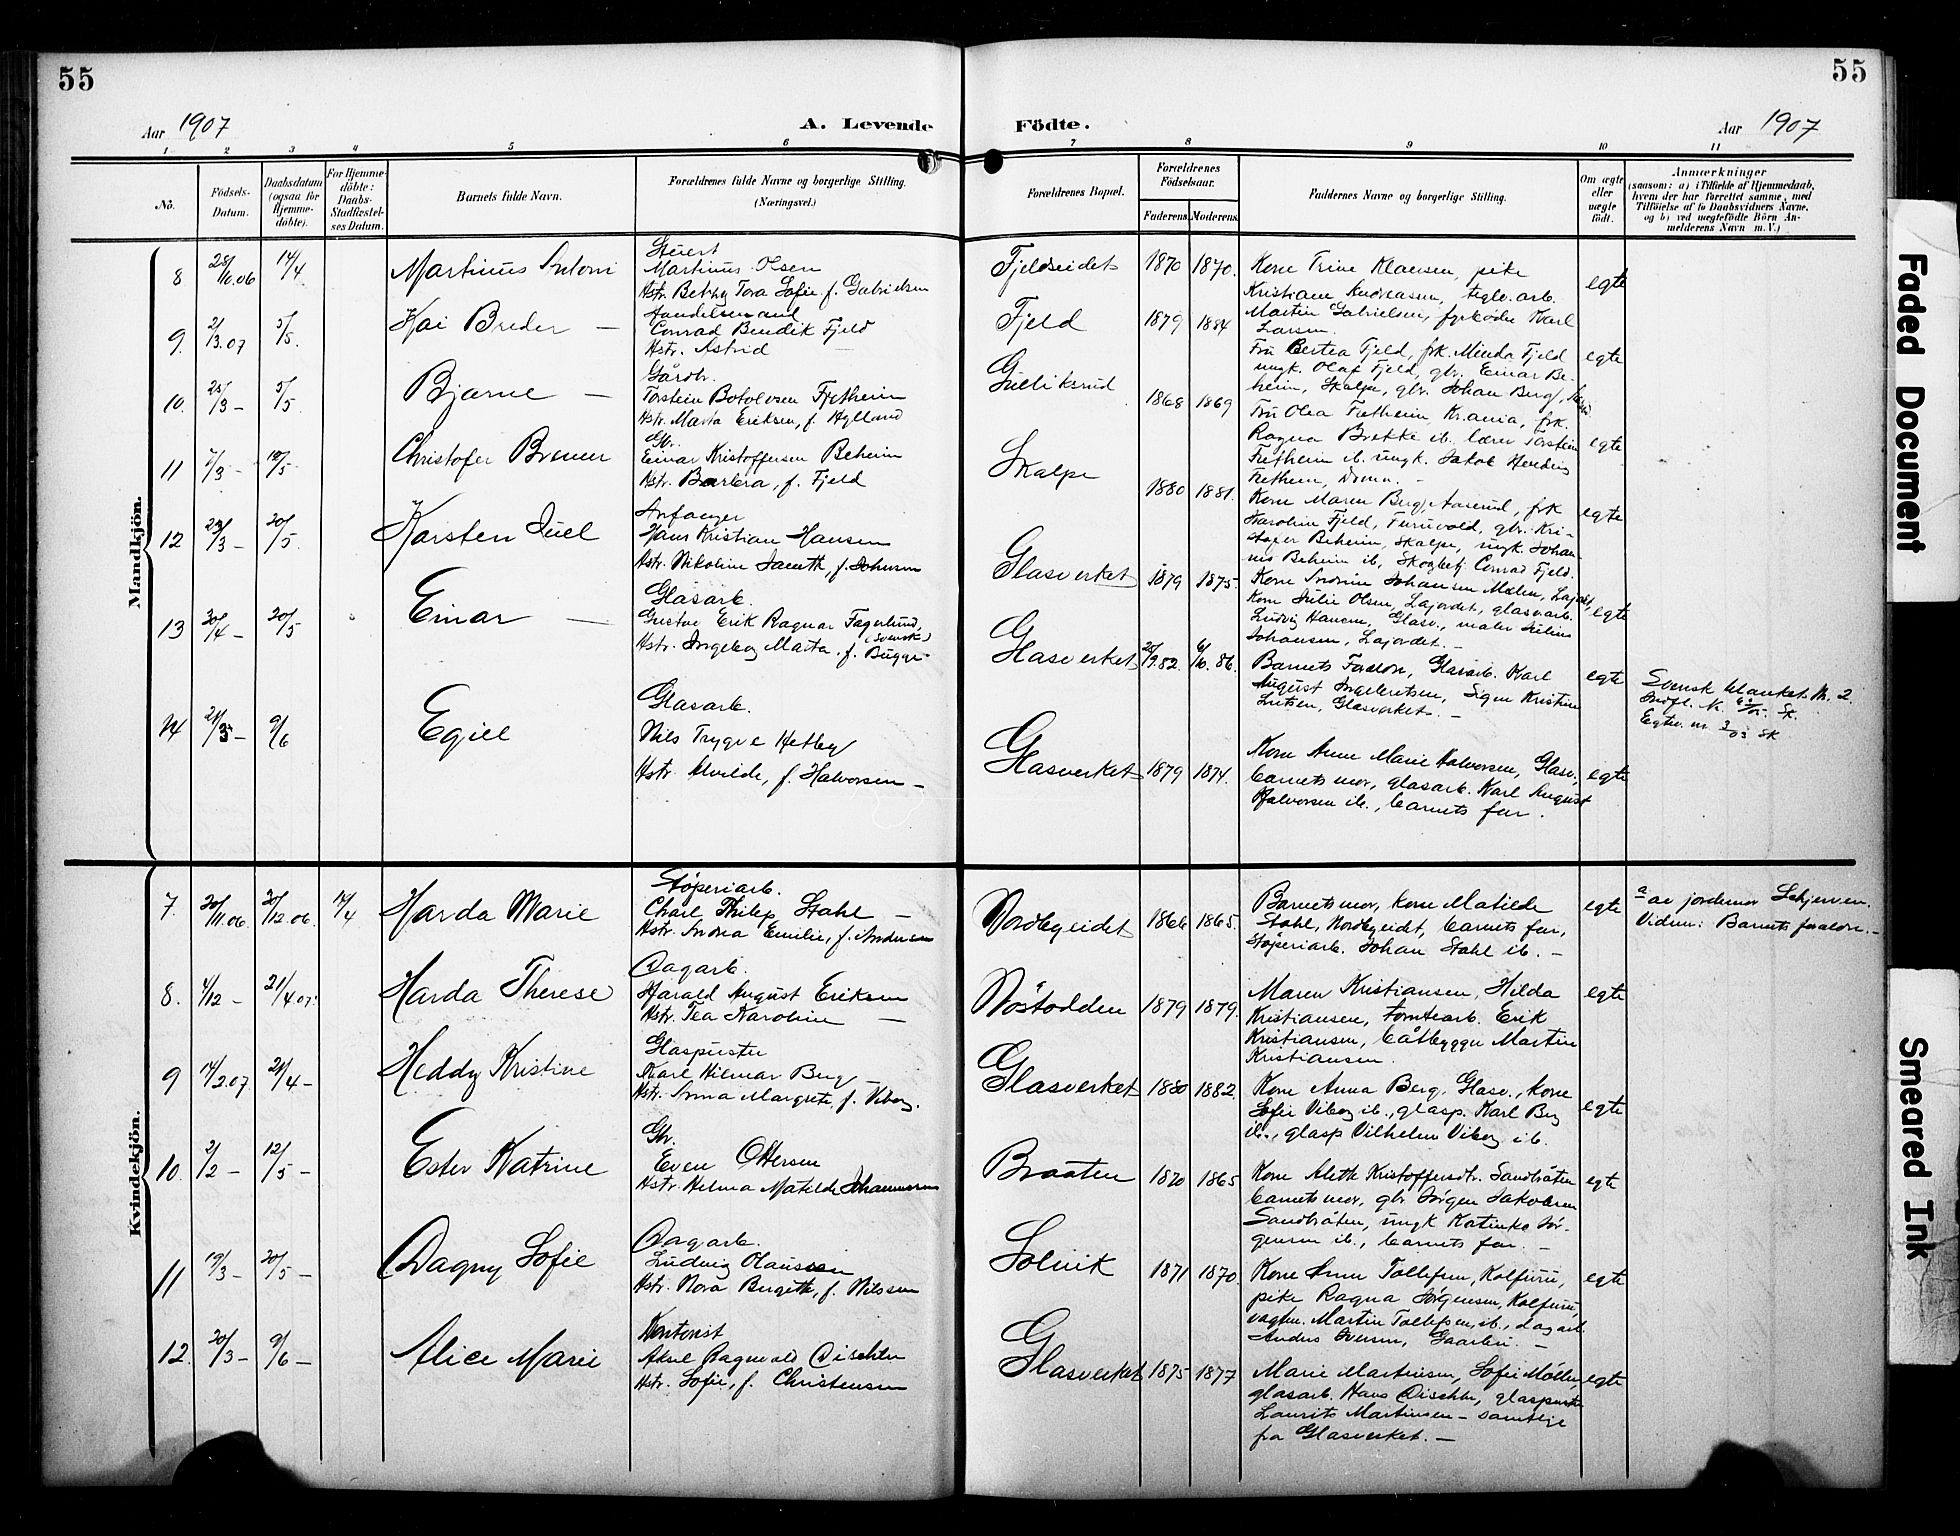 55
55
Aar 1907
A. Levende
Fødte.
Aar 1907
1 2 3 4 5 6 7 8 9 10 11
No.
Fødsels-Datum.
Daabsdatum (ogsaa for Hjemme-døbte).
For Hjemme-døbte: Daabs-Stadfæstel-ses Datum.
Barnets fulde Navn.
Forældrenes fulde Navne og borgerlige Stilling.
(Næringsvei.)
Forældrenes Bopæl.
Forældrenes Fødselsaar.
Faderens. Moderens.
Faddernes Navne og borgerlige Stilling.
Om ægte eller uægte født.
Anmærkninger
(saasom: a) i Tilfælde af Hjemmedaab,
hvem der har forrettet samme, med
Tilføielse af to Daabsvidners Navne,
og b) ved uægtefødte Børn An-
melderens Navn m. V.)
Mandkjøn.
8 14/4 Martinus Antoni
Stuert
Martinus Olsen
Hstr. Betzy Tora Sofie f. Gabrielsen
Fjeldseidet 1870 1870.
Kone Trine Klausen, pike
Kristiane Andreasen, teglv.arb.
Martin Gabrielsen, fyrbøder Karl
Larsen.
egte
9. 2/3.07 5/5. Kai Breder —
Handelsmand
Conrad Bendik Fjeld
Hstr. Astrid —
Fjeld 1879 1884
Fru Bertea Fjeld, frk. Minda Fjeld
ungk. Olaf Fjeld, gbr. Einar Be-
heim, Skalpe, gbr. Johan Berg,
egte
10. 25/3 — 5/5 Bjarne —
Gårdbr.
Torstein Botolvsen Fretheim
Hstr. Marta Eriksen, f. Hylland
Gulliksrud 1868 1869
Fru Olea Fretheim, Kr.ania, frk.
Ragna Brekke ib. lærer Torstein
Fretheim ib. ungk. Jakob
Fretheim,
egte
11 7/3 — 12/5 — Christofer Bremer
Gbr.
Einar Kristoffersen Beheim
Hstr. Barbra, f. Fjeld
Skalpe 1880 1881.
Kone Maren Berg, Aaserud, frk
Karoline Fjeld, Furuvold, gbr. Kri-
stofer Beheim, Skalpe, ungk. Johan-
nes Beheim ib, Skogbetj. Conrad Fjeld.
egte
12 23/3 — 20/5. Karsten Juel
Anfanger
Hans Kristian Hansen
Hstr. Nikoline Janette, f. Johnsen
Glasverket 1879 1875.
Kone Johansen Mælen, Lajordet,
Kone Julie Olsen, Lajordet, glasv.arb.
Ludvig Hansen, Glasv., maler Julius
Johansen, Lajordet. —
egte
13 30/4 — 20/5 Einar —
Glasarb.
Gustav Erik Ragnar Fagerlund,
(svensk)
Hstr. Ingeborg Marta. f. Bugge
Glasverket 20/9.82. 86.
Barnets Foreldre, Glasarb. Karl
August Ingebretsen, Signe Kristine
Glasverket. —
egte
Svensk blanket Nr. 2
14 21/3 — 9/6 Egill
Glasarb.
Nils Trygve Hetley
Hstr. Alvilde, f. Halvorsen —
Glasverket 1879 1874.
Kone Anne Marie Halvorsen, Glasv.,
barnets mor, glasarb. Karl August
Halvorsen ib., barnets far.
egte
Kvindekjøn.
7. 20/11.06 30/12.06. 14/4 Harda Marie
Støperiarb.
Charl. Philip Stahl —
Hstr. Andrea Emilie, f. Andersen
Nordbyeidet 1866 1865.
Barnets mor, kone Matilde
Stahl, Nordbyeidet, barnets far,
Støperiarb. Johan Stahl ib. —
egte
av jordemor
Vidner: Barnets foreldre. —
8. 4/12 — 21/4 07. Harda Therese
Dagarb.
Harald August Eriksen
Hstr. Tea Karoline —
Nøstodden 1879 1879.
Maren Kristiansen, Hilda
Kristiansen, Erik
Kristiansen, båtbygger Martin
Kristiansen.
egte
9 14/2.07. 21/4 — Heddy Kristine
Glaspuster
Karl Hilmar Berg —
Hstr. Anna Margrete, f. Viborg.
Glasverket 1880 1882.
Kone Anna Berg, Glasv., kone
Sofie Viborg ib., glasp. Karl Berg
ib., glasp Vilhelm Viborg ib.
egte
10. 2/2 — 12/5 — Ester Katrine
Gbr.
Even Ottersen
Hstr. Helma Matilde Johannesen
Braaten 1870 1865
Kone Aleth Kristoffersdtr. Sandbråten
barnets mor, gbr Jørgen Jakobsen
Sandbråten, ungk Katinka Jør-
gensen ib., barnets far. —
egte
11 19/3 — 20/5 — Dagny Sofie
Dagarb.
Ludvig Olaussen
Hstr. Nora Bergitte, f. Nilssen
Solvik 1871 1870.
Kone Anne Tollefsen, Kolfuru,
pike Ragna Jørgensen, Kolfuru,
vagtm. Martin Tollefsen, ib., dagarb
Anders Iversen, —
egte
12. 20/3 — 9/6 — Alice Marie
Kontorist
Aksel Ragnvald Dischler
Hstr. Sofie, f. Christensen
Glasverket 1875 1877
Marie Martinsen, Sofie Møller,
glasarb. Hans Dischler, glaspuster
Laurits Martinsen — samtlige
fra Glasverket. —
egte
Faded Document
Smeared Ink